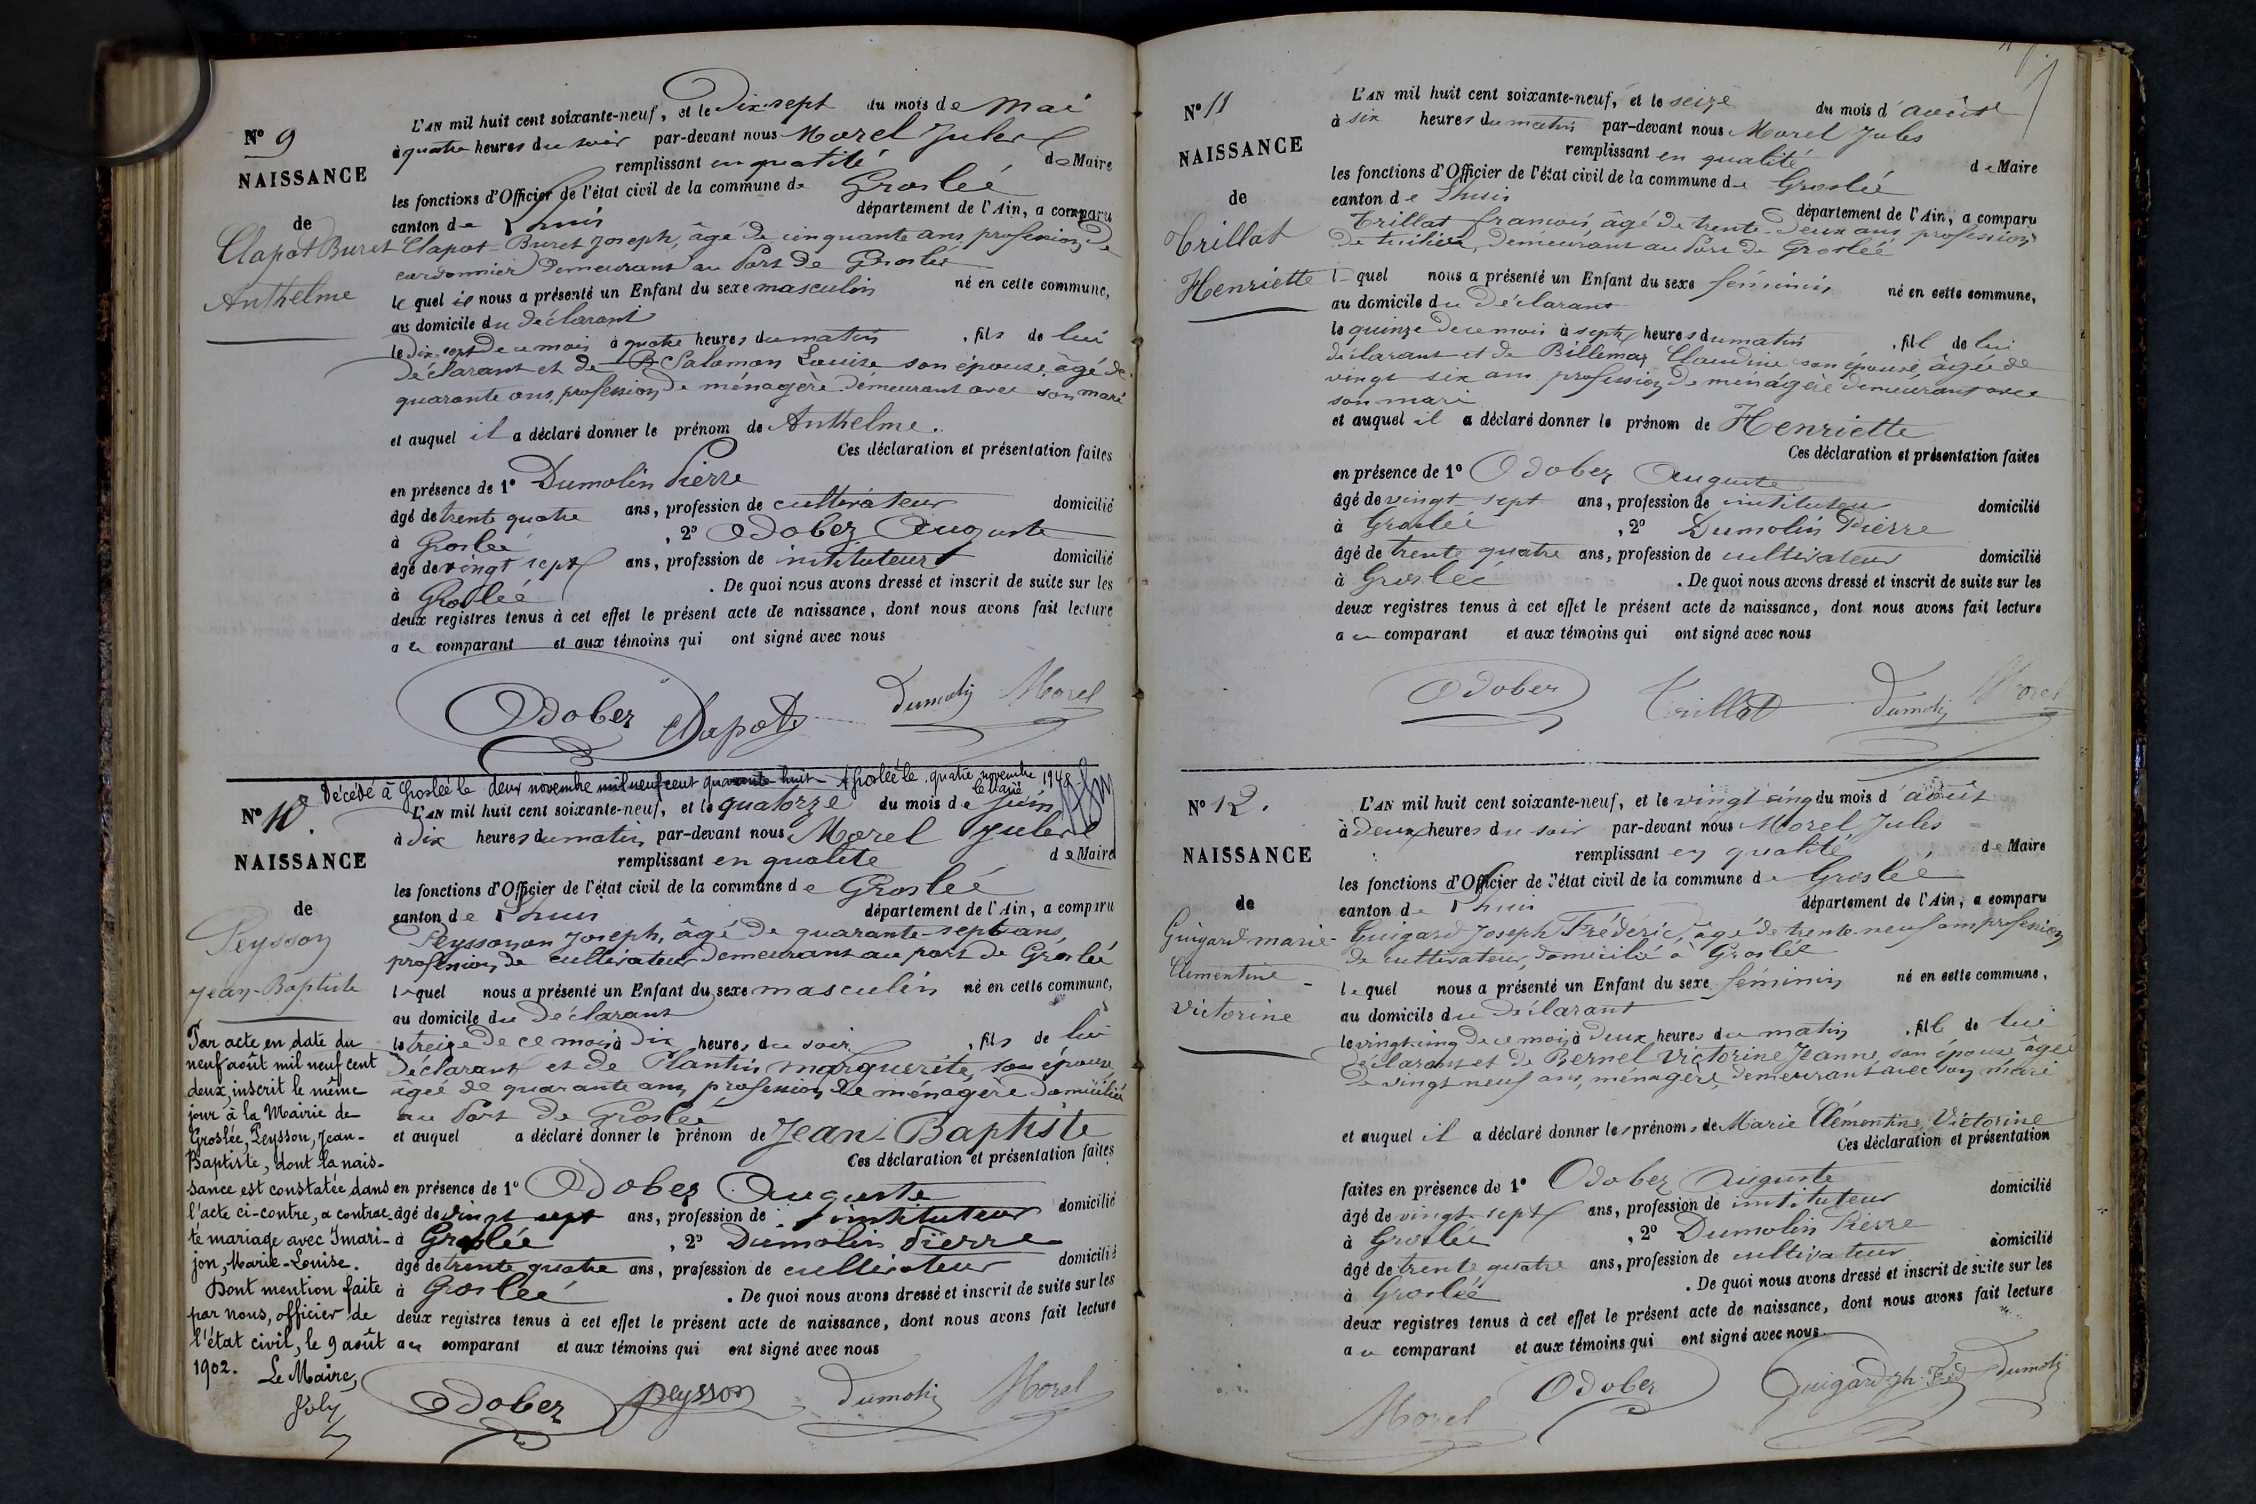 L'AN mil huit cent soixante-neuf, et le Dix-sept du mois de Mai
à quatre heures du soir par-devant nous Morel Jules
remplissant en qualité de Maire
les fonctions d'Officier de l'état civil de la commune de Groslée
canton de Lhuis département de l'Ain, a comparu
Clapot-Buret Joseph, âgé de cinquante ans, profession de
cordonnier demeurant au Port de Groslée
le quel il nous a présenté un Enfant du sexe masculin né en cette commune,
au domicile du déclarant
le dix-sept de ce mois à quatre heures du matin, fils de lui
déclarant et de Salomon Louise son épouse, âgé de
quarante ans, profession de ménagère demeurant avec son mari
et auquel il a déclaré donner le prénom de Anthelme.
Ces déclaration et présentation faites
en présence de 1° Dumolin Pierre
âgé de trente quatre ans, profession de cultivateur domicilié
à Groslée, 2° Odobez Auguste
âgé de vingt sept ans, profession de instituteur domicilié
à Groslée. De quoi nous avons dressé et inscrit de suite sur les
deux registres tenus à cet effet le présent acte de naissance, dont nous avons fait lecture
au comparant et aux témoins qui ont signé avec nous
Odobez Clapot Dumolin Morel
N° 9
NAISSANCE
de
Clapot Buret
Anthelme
Décédé à Groslée le deux novembre mil neuf cent quarante huit - Groslée le quatre novembre 1948
le Maire
L'AN mil huit cent soixante-neuf, et le quatorze du mois de juin
à dix heures du matin, par-devant nous Morel Jules
remplissant en qualité de Maire
les fonctions d'Officier de l'état civil de la commune de Groslée
canton de Lhuis département de l'Ain, a comparu
Peysson Joseph, âgé de quarante-sept ans,
profession de cultivateur demeurant au port de Groslée
lequel nous a présenté un Enfant du sexe masculin né en cette commune,
au domicile du déclarant
le treize de ce mois à dix heures du soir, fils de lui
déclarant et de Plantin Marguerite, son épouse,
âgée de quarante ans, profession de ménagère domiciliée
au Port de Groslée
et auquel a déclaré donner le prénom de Jean-Baptiste
Ces déclaration et présentation faites
en présence de 1° Odobez Auguste
âgé de vingt sept ans, profession de instituteur domicilié
à Groslée, 2° Dumolin Pierre
âgé de trente quatre ans, profession de cultivateur domicilié
à Groslée. De quoi nous avons dressé et inscrit de suite sur les
deux registres tenus à cet effet le présent acte de naissance, dont nous avons fait lecture
au comparant et aux témoins qui ont signé avec nous
Odobez Peysson Dumolin Morel
N° 10.
NAISSANCE
de
Peysson
Jean-Baptiste
Par acte en date du
neuf août mil neuf cent
deux, inscrit le même
jour à la Mairie de
Groslée, Peysson, Jean-
Baptiste, dont la nais-
sance est constatée dans
l'acte ci-contre, a contrac-
té mariage avec Imari-
jon, Marie-Louise.
Dont mention faite
par nous, officier de
l'état civil, le 9 août
1902. Le Maire,
Joly
L'AN mil huit cent soixante-neuf, et le seize du mois d'août
à six heures du matin par-devant nous Morel Jules
remplissant en qualité de Maire
les fonctions d'Officier de l'état civil de la commune de Groslée
canton de Lhuis département de l'Ain, a comparu
Trillat françois, âgé de trente-deux ans profession
de tuilier, demeurant au Port de Groslée
lequel nous a présenté un Enfant du sexe féminin né en cette commune,
au domicile du déclarant
le quinze de ce mois à sept heures du matin, fille de lui
déclarant et de Billemaz Claudine son épouse, âgée de
vingt six ans profession de ménagère demeurant avec
son mari
et auquel il a déclaré donner le prénom de Henriette
Ces déclaration et présentation faites
en présence de 1° Odobez Auguste
âgé de vingt-sept ans, profession de instituteur domicilié
à Groslée, 2° Dumolin Pierre
âgé de trente quatre ans, profession de cultivateur domicilié
à Groslée. De quoi nous avons dressé et inscrit de suite sur les
deux registres tenus à cet effet le présent acte de naissance, dont nous avons fait lecture
au comparant et aux témoins qui ont signé avec nous
Odobez Trillat Dumolin Morel
N° 11
NAISSANCE
de
Trillat
Henriette
L'AN mil huit cent soixante-neuf, et le vingt cinq du mois d'août
à deux heures du soir par-devant nous Morel Jules
remplissant en qualité de Maire
les fonctions d'Officier de l'état civil de la commune de Groslée
canton de Lhuis département de l'Ain, a comparu
Guigard Joseph Frédéric, âgé de trente-neuf ans profession
de cultivateur, domicilié à Groslée
lequel nous a présenté un Enfant du sexe féminin né en cette commune,
au domicile du déclarant
le vingt-cinq de ce mois à deux heures du matin, fille de lui
déclarant et de Bernel Victorine Jeanne, son épouse, âgée
de vingt neuf ans, ménagère, demeurant avec son mari
et auquel il a déclaré donner les prénoms de Marie Clémentine Victorine
Ces déclaration et présentation
faites en présence de 1° Odobez Auguste
âgé de vingt-sept ans, profession de instituteur domicilié
à Groslée, 2° Dumolin Pierre
âgé de trente quatre ans, profession de cultivateur domicilié
à Groslée. De quoi nous avons dressé et inscrit de suite sur les
deux registres tenus à cet effet le présent acte de naissance, dont nous avons fait lecture
au comparant et aux témoins qui ont signé avec nous.
Morel Odobez Guigard Jph. Fréd Dumolin
N° 12.
NAISSANCE
de
Guigard marie-
Clémentine-
Victorine